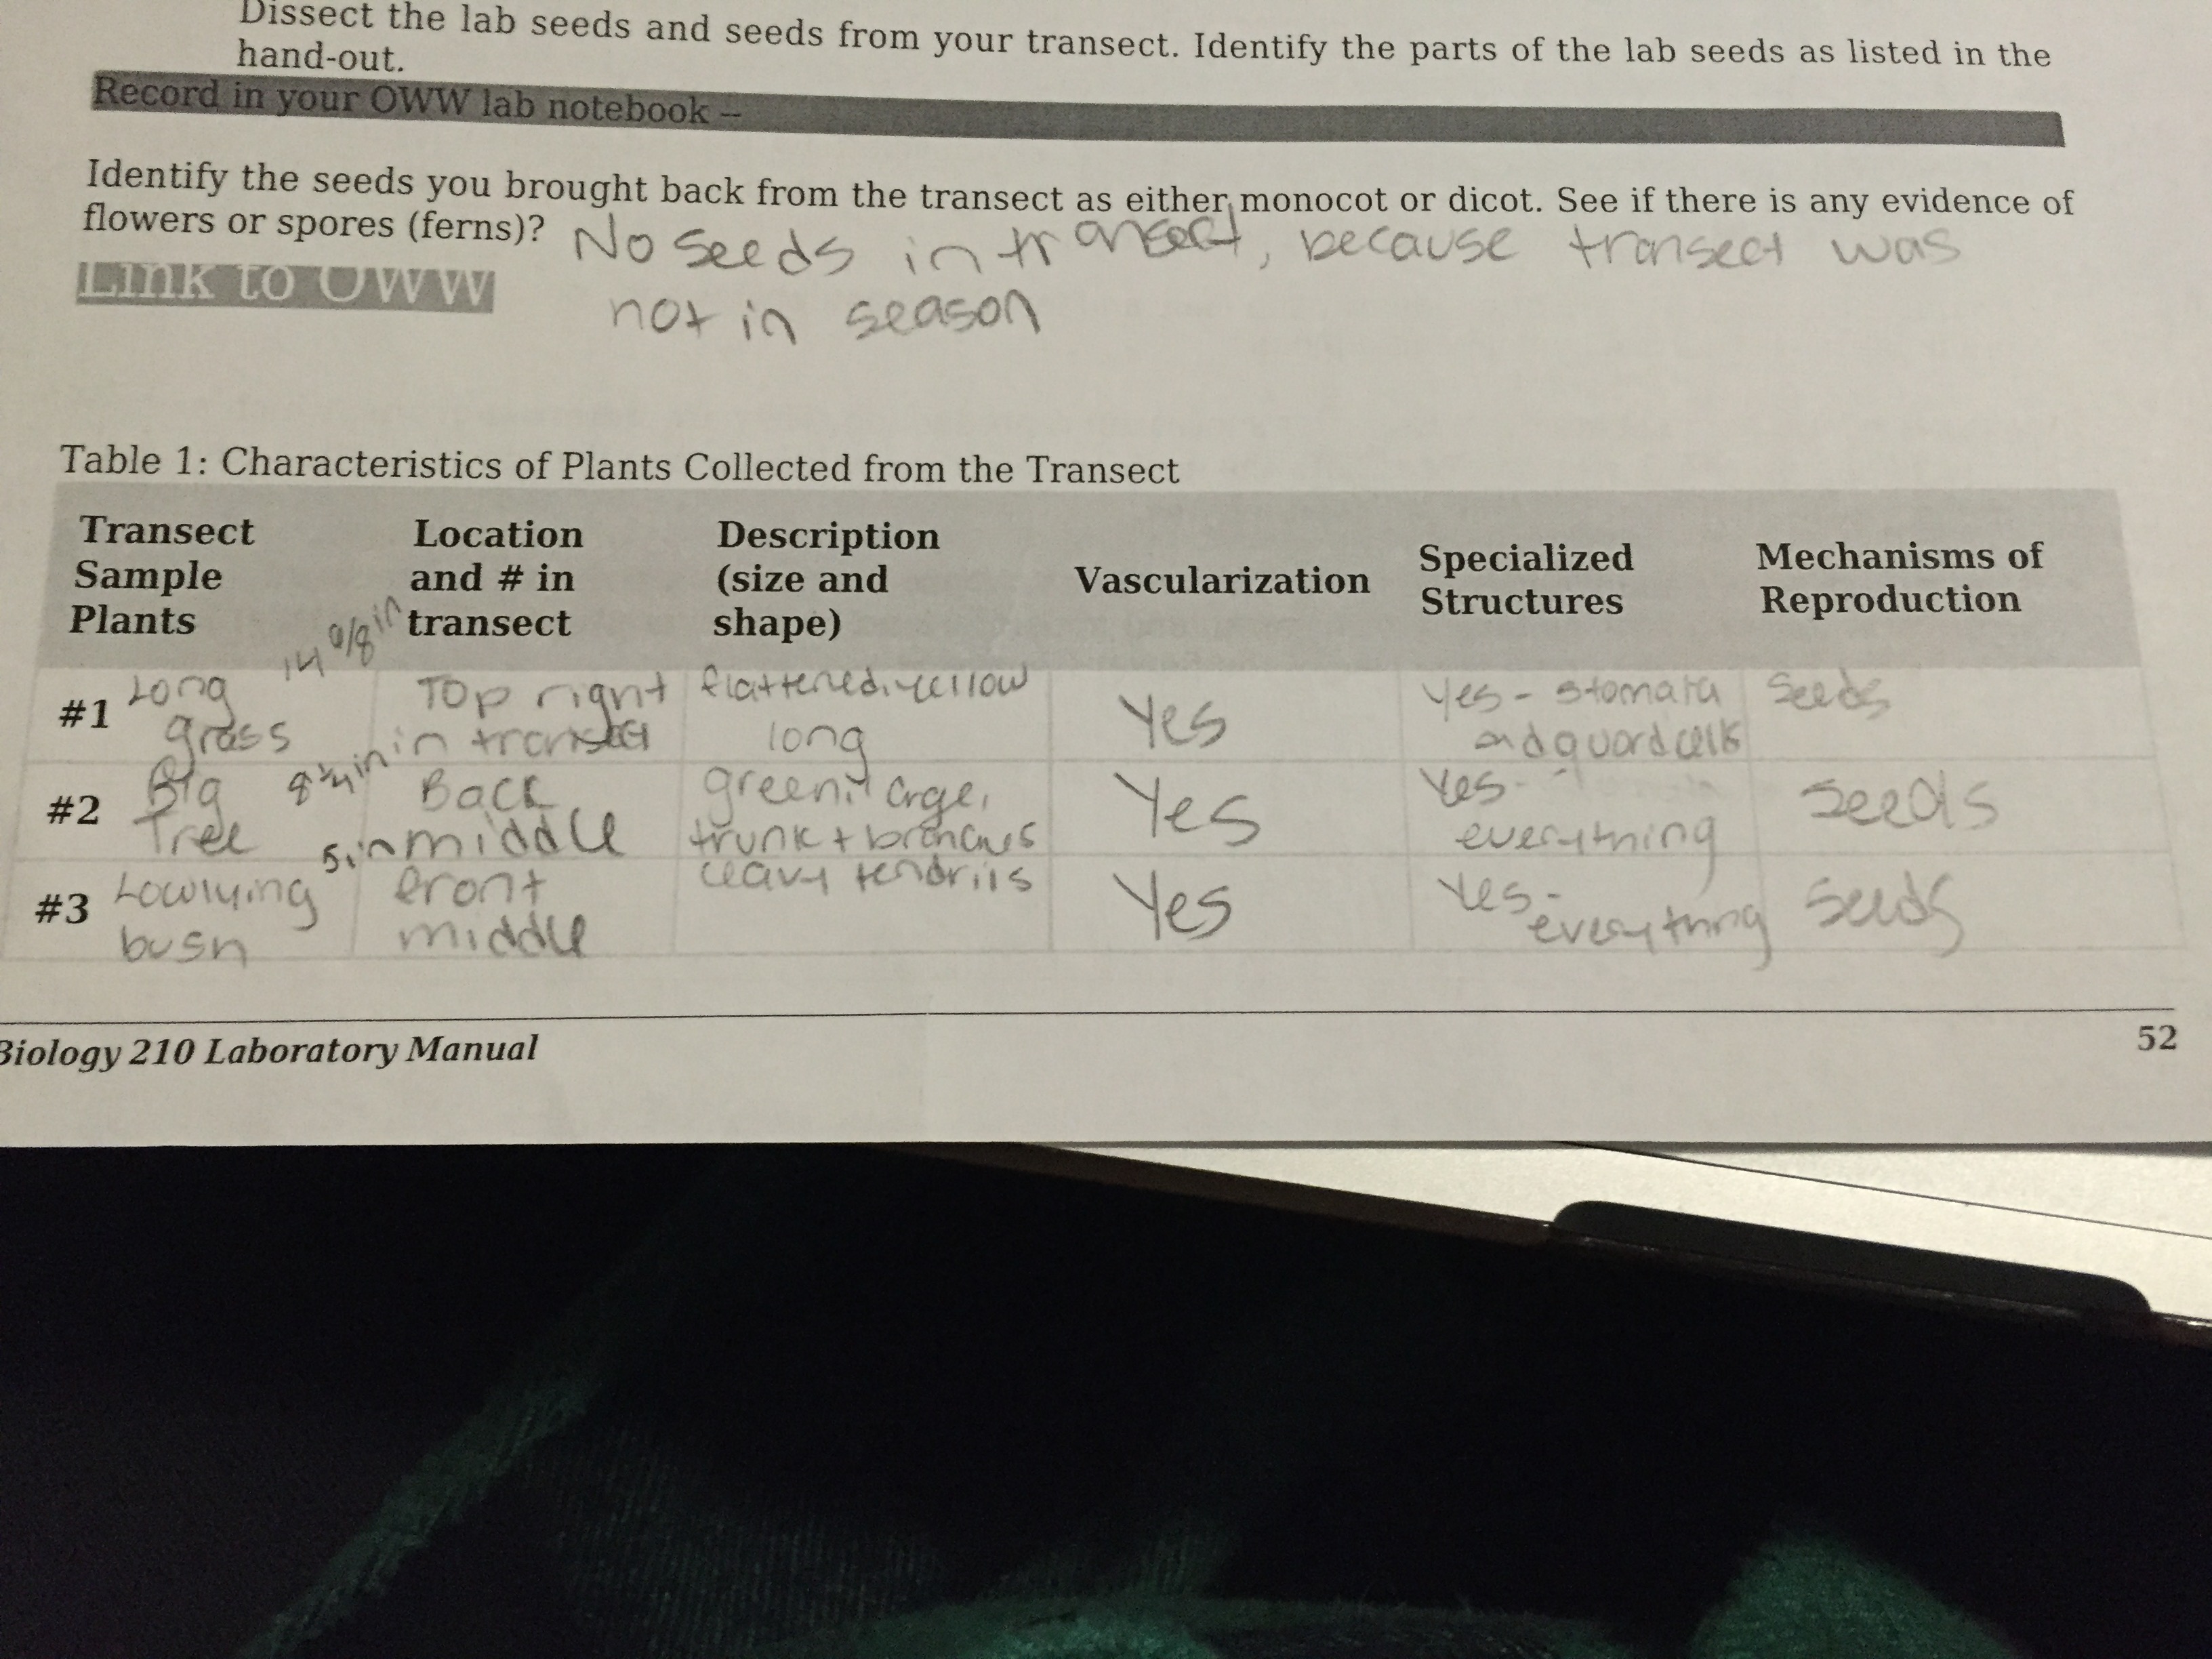 Dissect the lab seeds and seeds from your transect. Identify the parts of the lab seeds as listed in the
hand-out.
Record in your OWW lab notebook --
Identify the seeds you brought back from the transect as either monocot or dicot. See if there is any evidence of
flowers or spores (ferns)?
No seeds in transect, because transect was
not in season
Link to OWW
Table 1: Characteristics of Plants Collected from the Transect
Transect
Sample
Plants
Location
and # in
transect
Description
(size and
shape)
Vascularization
Specialized
Structures
Mechanisms of
Reproduction
#1
Long
grass
in
Top right
in transect
flattened, yellow
long
Yes
Yes - stomata
and guard cells
Seeds
#2
Big
Tree
8 3/4 in
Back
middle
green, large,
trunk + branches
Yes
Yes -
everything
Seeds
#3
Lowlying
bush
5 in
front
middle
leavy tendrils
Yes
Yes -
everything
Seeds
Biology 210 Laboratory Manual
52